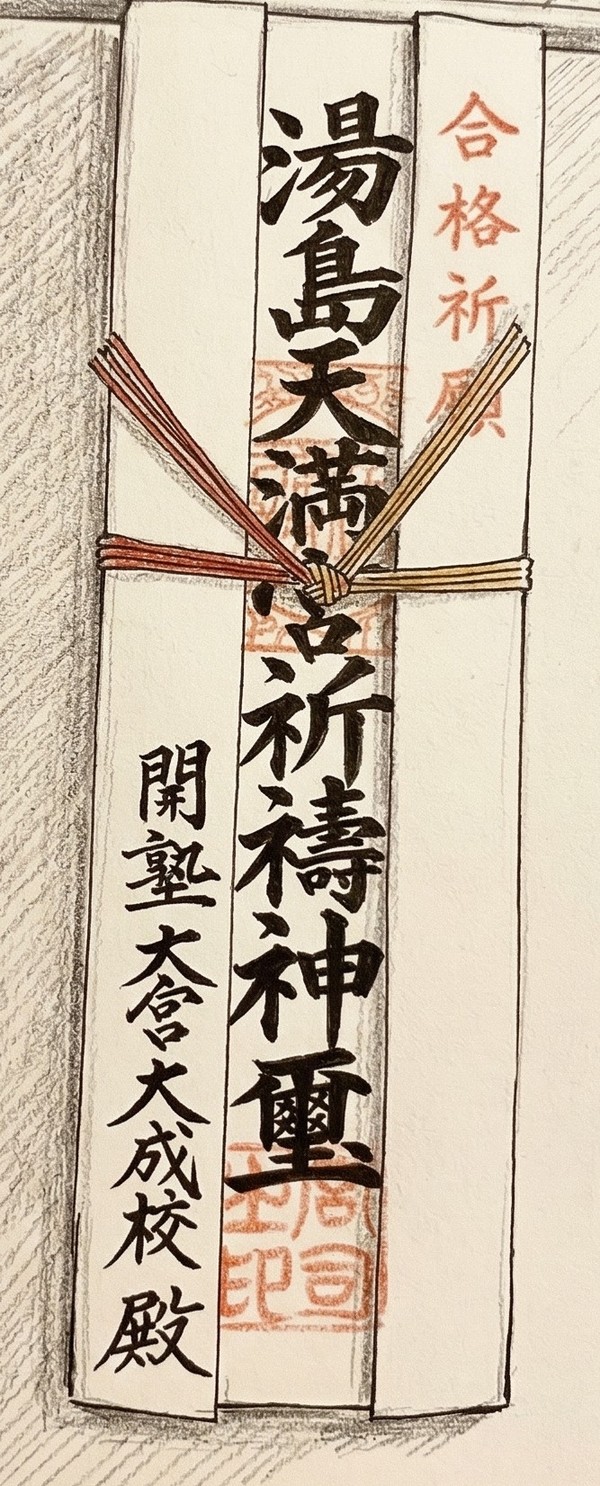 合格祈願
湯島天満宮祈禱神璽
開塾大宮大成校殿